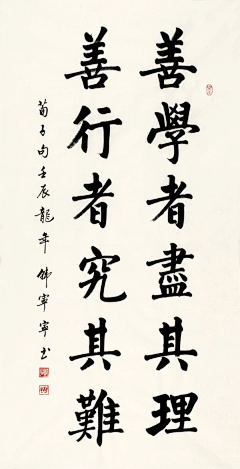 善學者盡其理
善行者究其難
荀子句壬辰龍年韓寧寧書